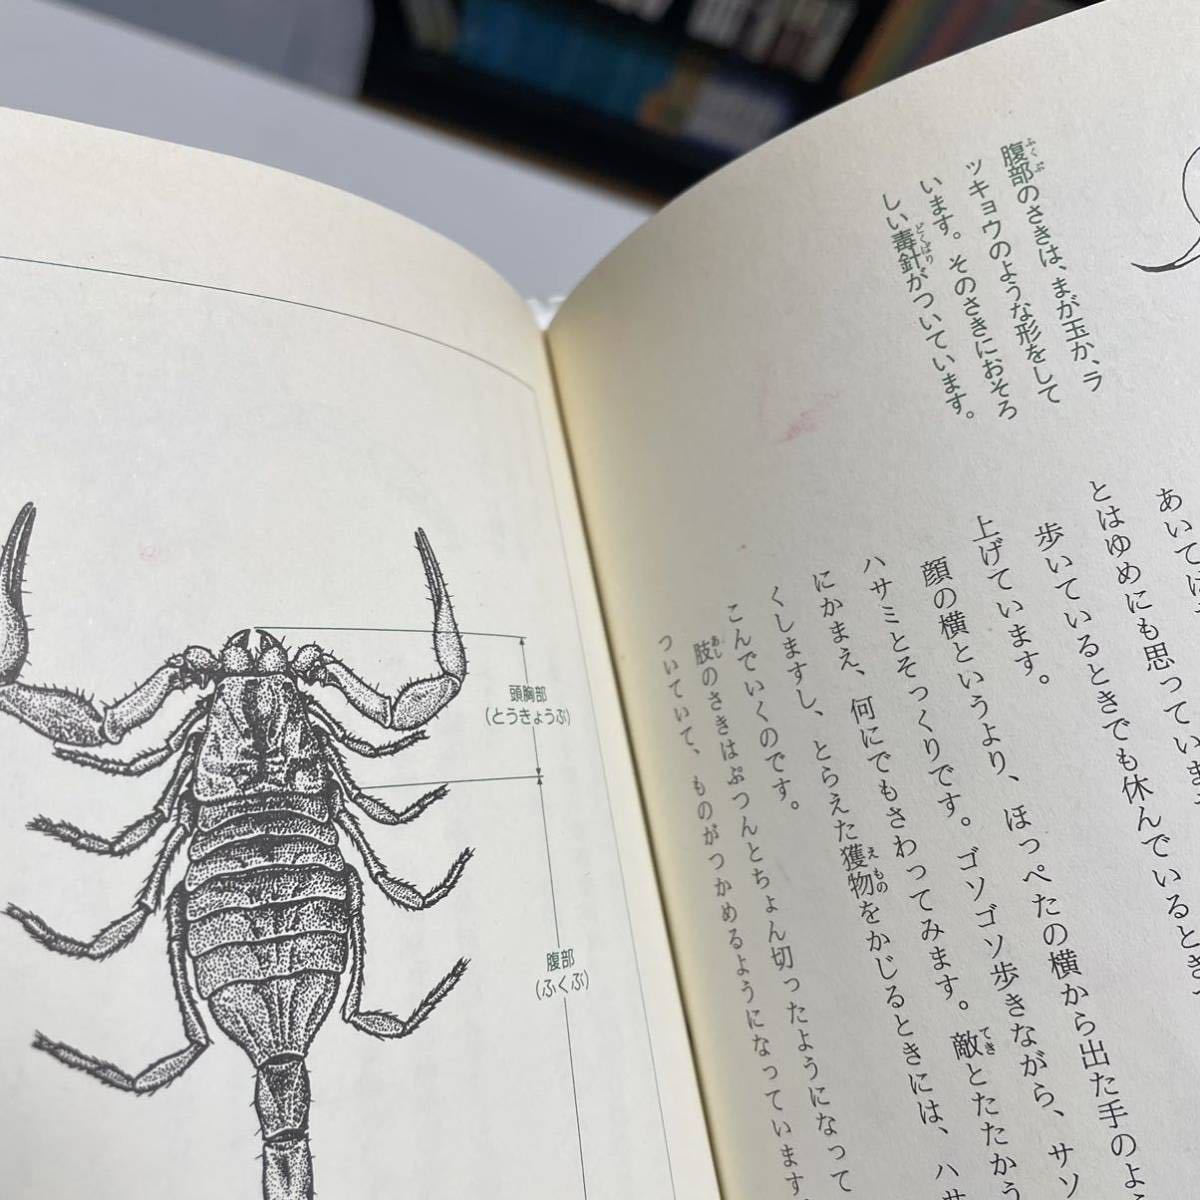 腹部のさきは、まが玉か、ラ
ッキョウのような形をして
います。そのさきにおそろ
しい毒針がついています。
とはゆめにも思っていませ
歩いているときでも休んでいるとき
上げています。
顔の横というより、ほっぺたの横から出た手のよ
ハサミとそっくりです。ゴソゴソ歩きながら、サソ
にかまえ、何にでもさわってみます。敵とたたかう
くしますし、とらえた獲物をかじるときには、ハサ
こんでいくのです。
肢のさきはぷつんとちょん切ったようになって
ついていて、ものがつかめるようになっています
頭胸部
(とうきょうぶ)
腹部
(ふくぶ)